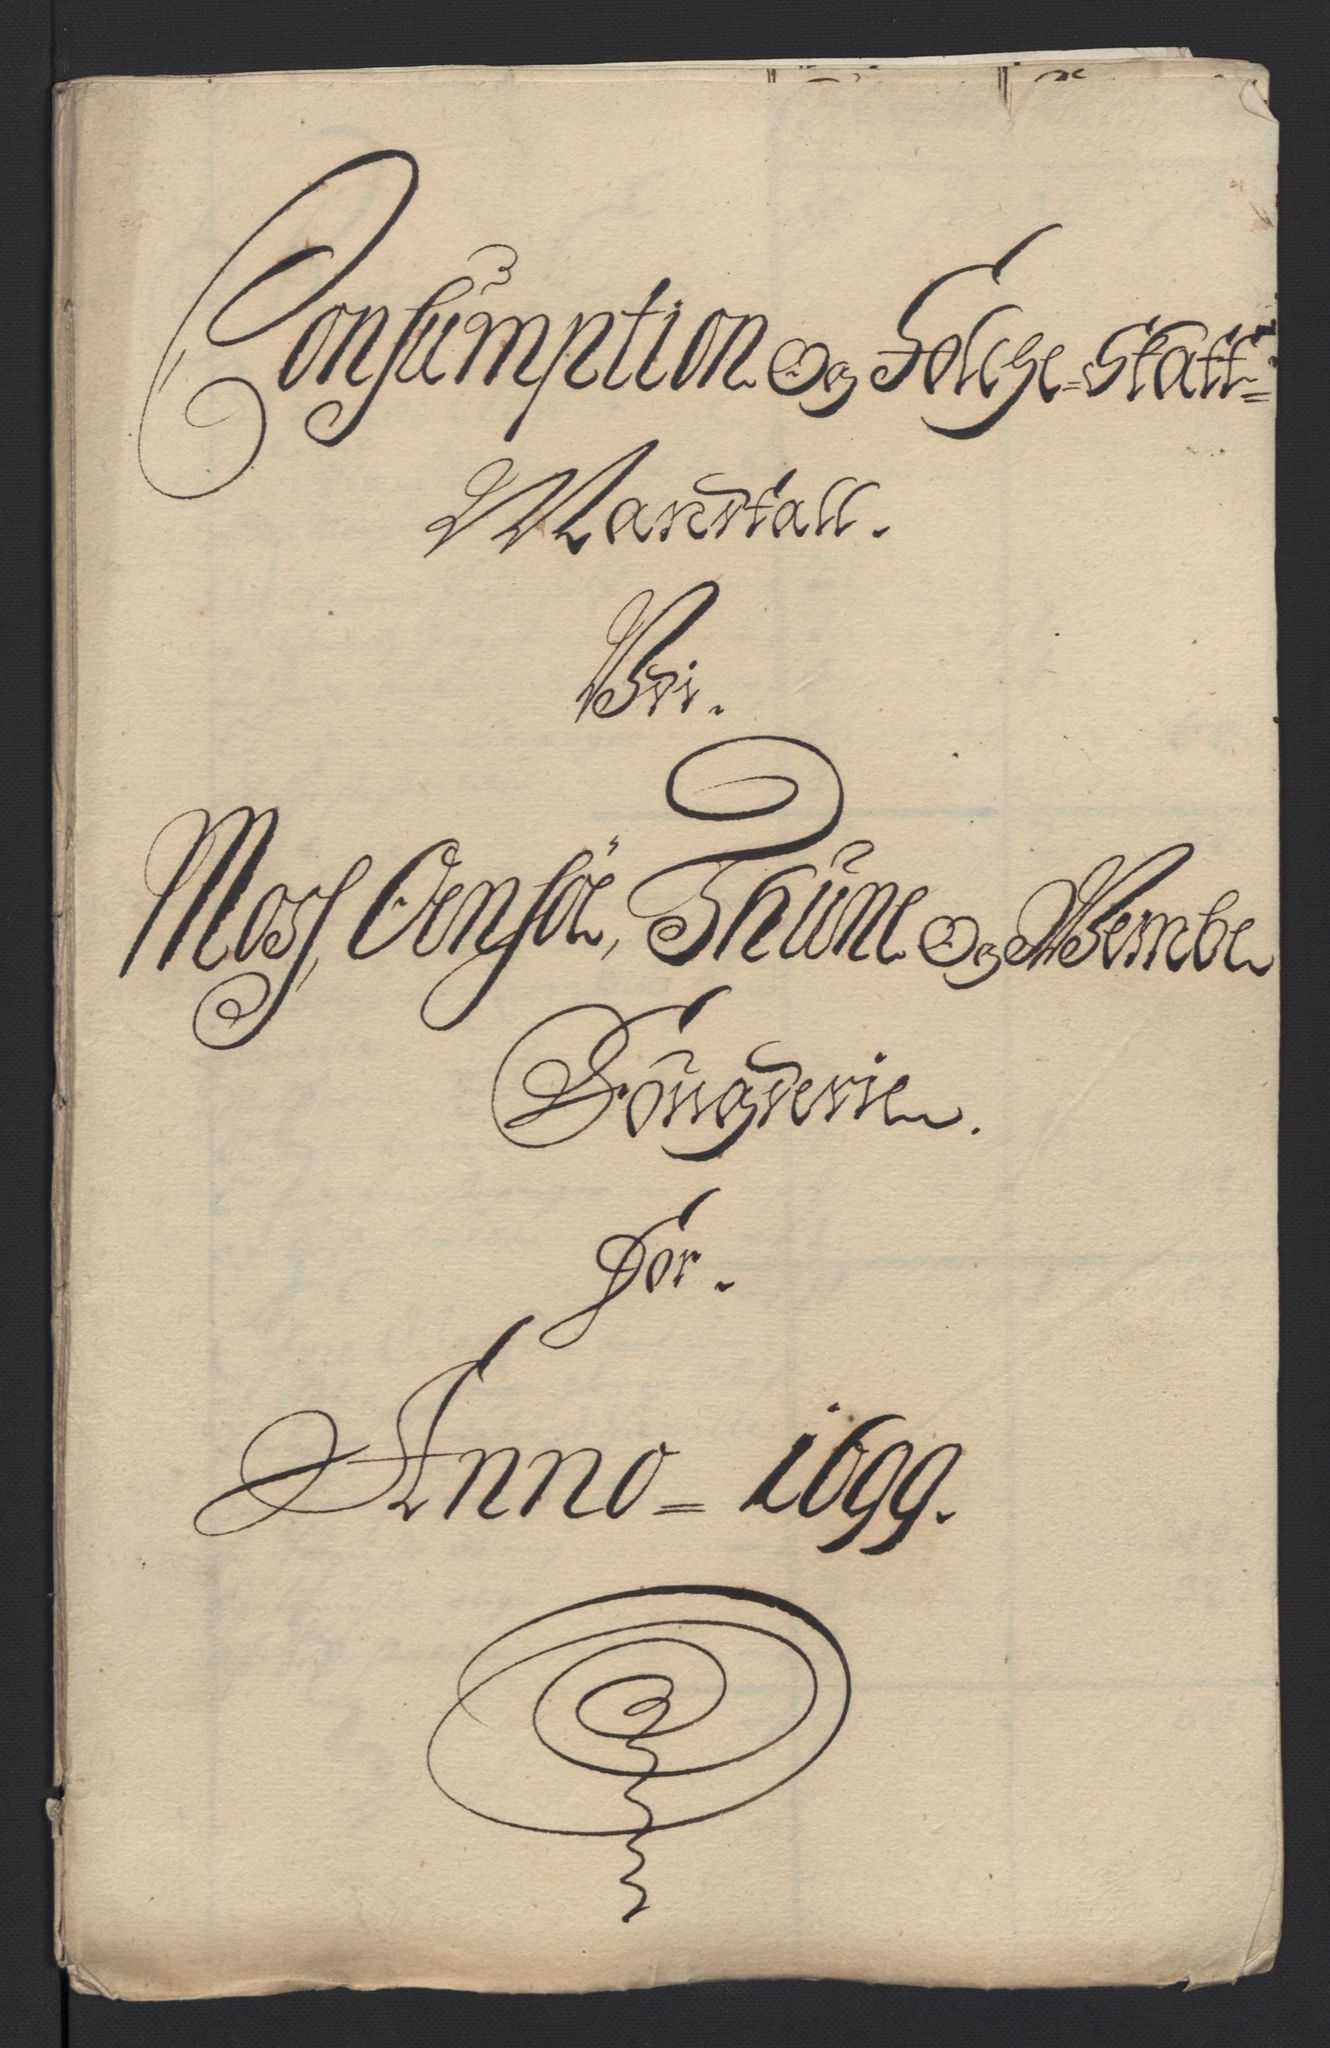 Consumption og Folche-skatt=
Mandtall.
Vdi.
Moss, Oensöe, Thune og Wembe
Fougderie.
for.
Anno = 1699.